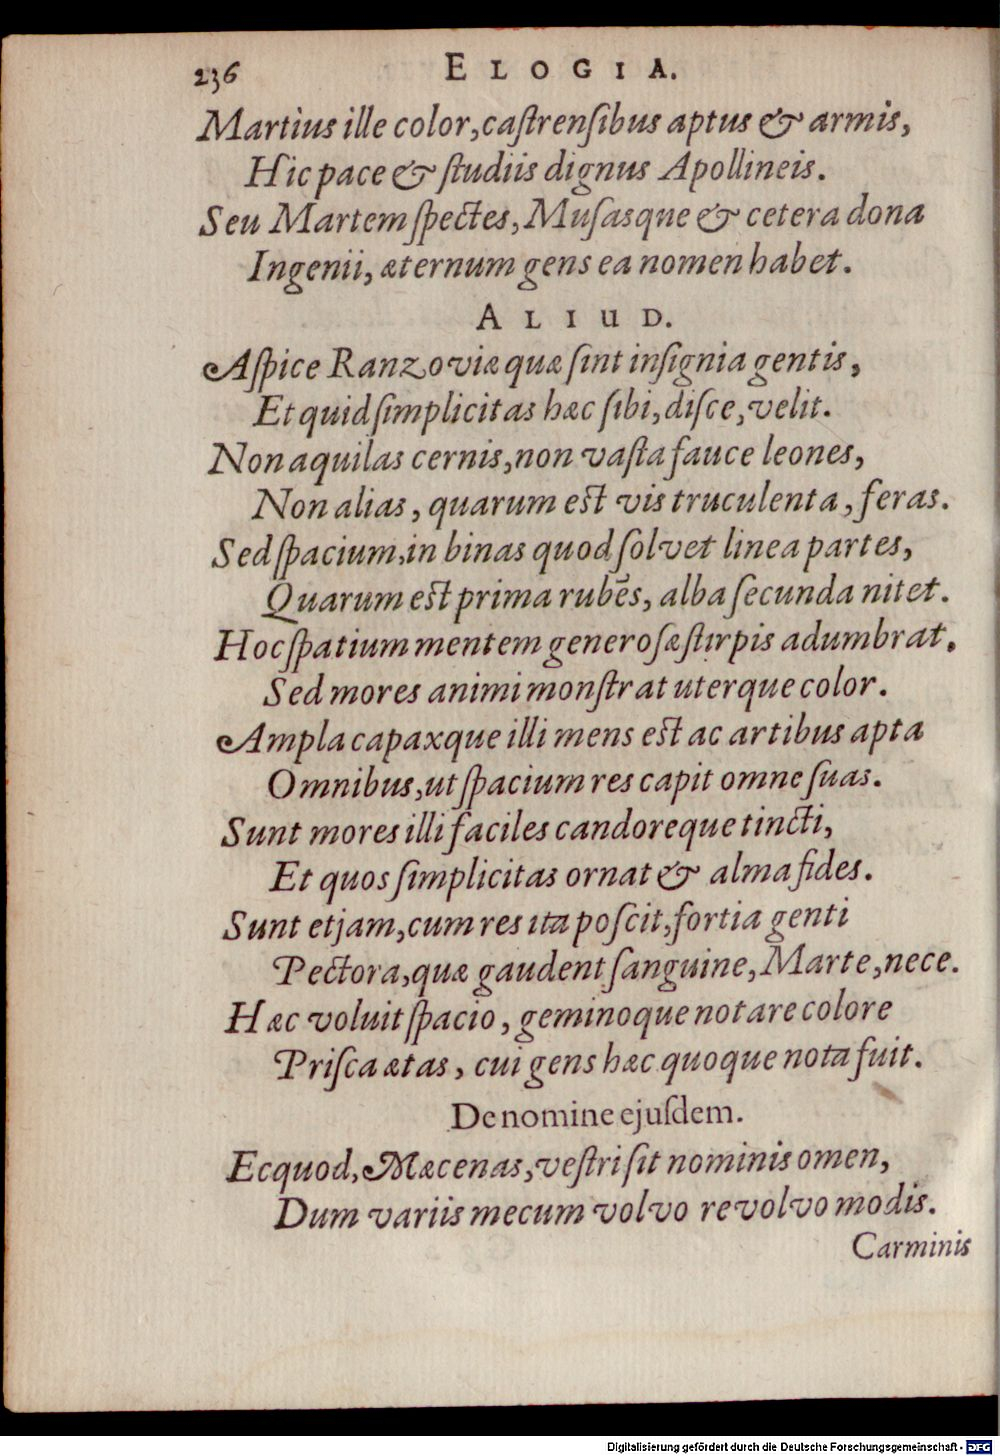 236 ELOGIA.
Martius ille color, caſtrenſibus aptus & armis,
Hic pace & ſtudiis dignus Apollineis.
Seu Martem ſpectes, Muſasque & cetera dona
Ingenii, æternum gens ea nomen habet.
ALIUD.
Aſpice Ranzoviæ quæ ſint inſignia gentis,
Et quid ſimplicitas hæc ſibi, diſce, velit.
Non aquilas cernis, non vaſta fauce leones,
Non alias, quarum est vis truculenta, feras.
Sed ſpacium, in binas quod ſolvet linea partes,
Quarum est prima rubēs, alba ſecunda nitet.
Hoc ſpatium mentem generoſæ ſtirpis adumbrat.
Sed mores animi monſtrat uterque color.
Ampla capaxque illi mens est ac artibus apta
Omnibus, ut ſpacium res capit omne ſuas.
Sunt mores illi faciles candoreque tincti,
Et quos ſimplicitas ornat & alma fides.
Sunt etjam, cum res ita poſcit, fortia genti
Pectora, quæ gaudent ſanguine, Marte, nece.
Hæc voluit ſpacio, geminoque notare colore
Priſca ætas, cui gens hæc quoque nota fuit.
De nomine ejuſdem.
Ecquod, Mæcenas, veſtri ſit nominis omen,
Dum variis mecum volvo revolvo modis.
Carminis
Digitalisierung gefördert durch die Deutsche Forschungsgemeinschaft - DFG